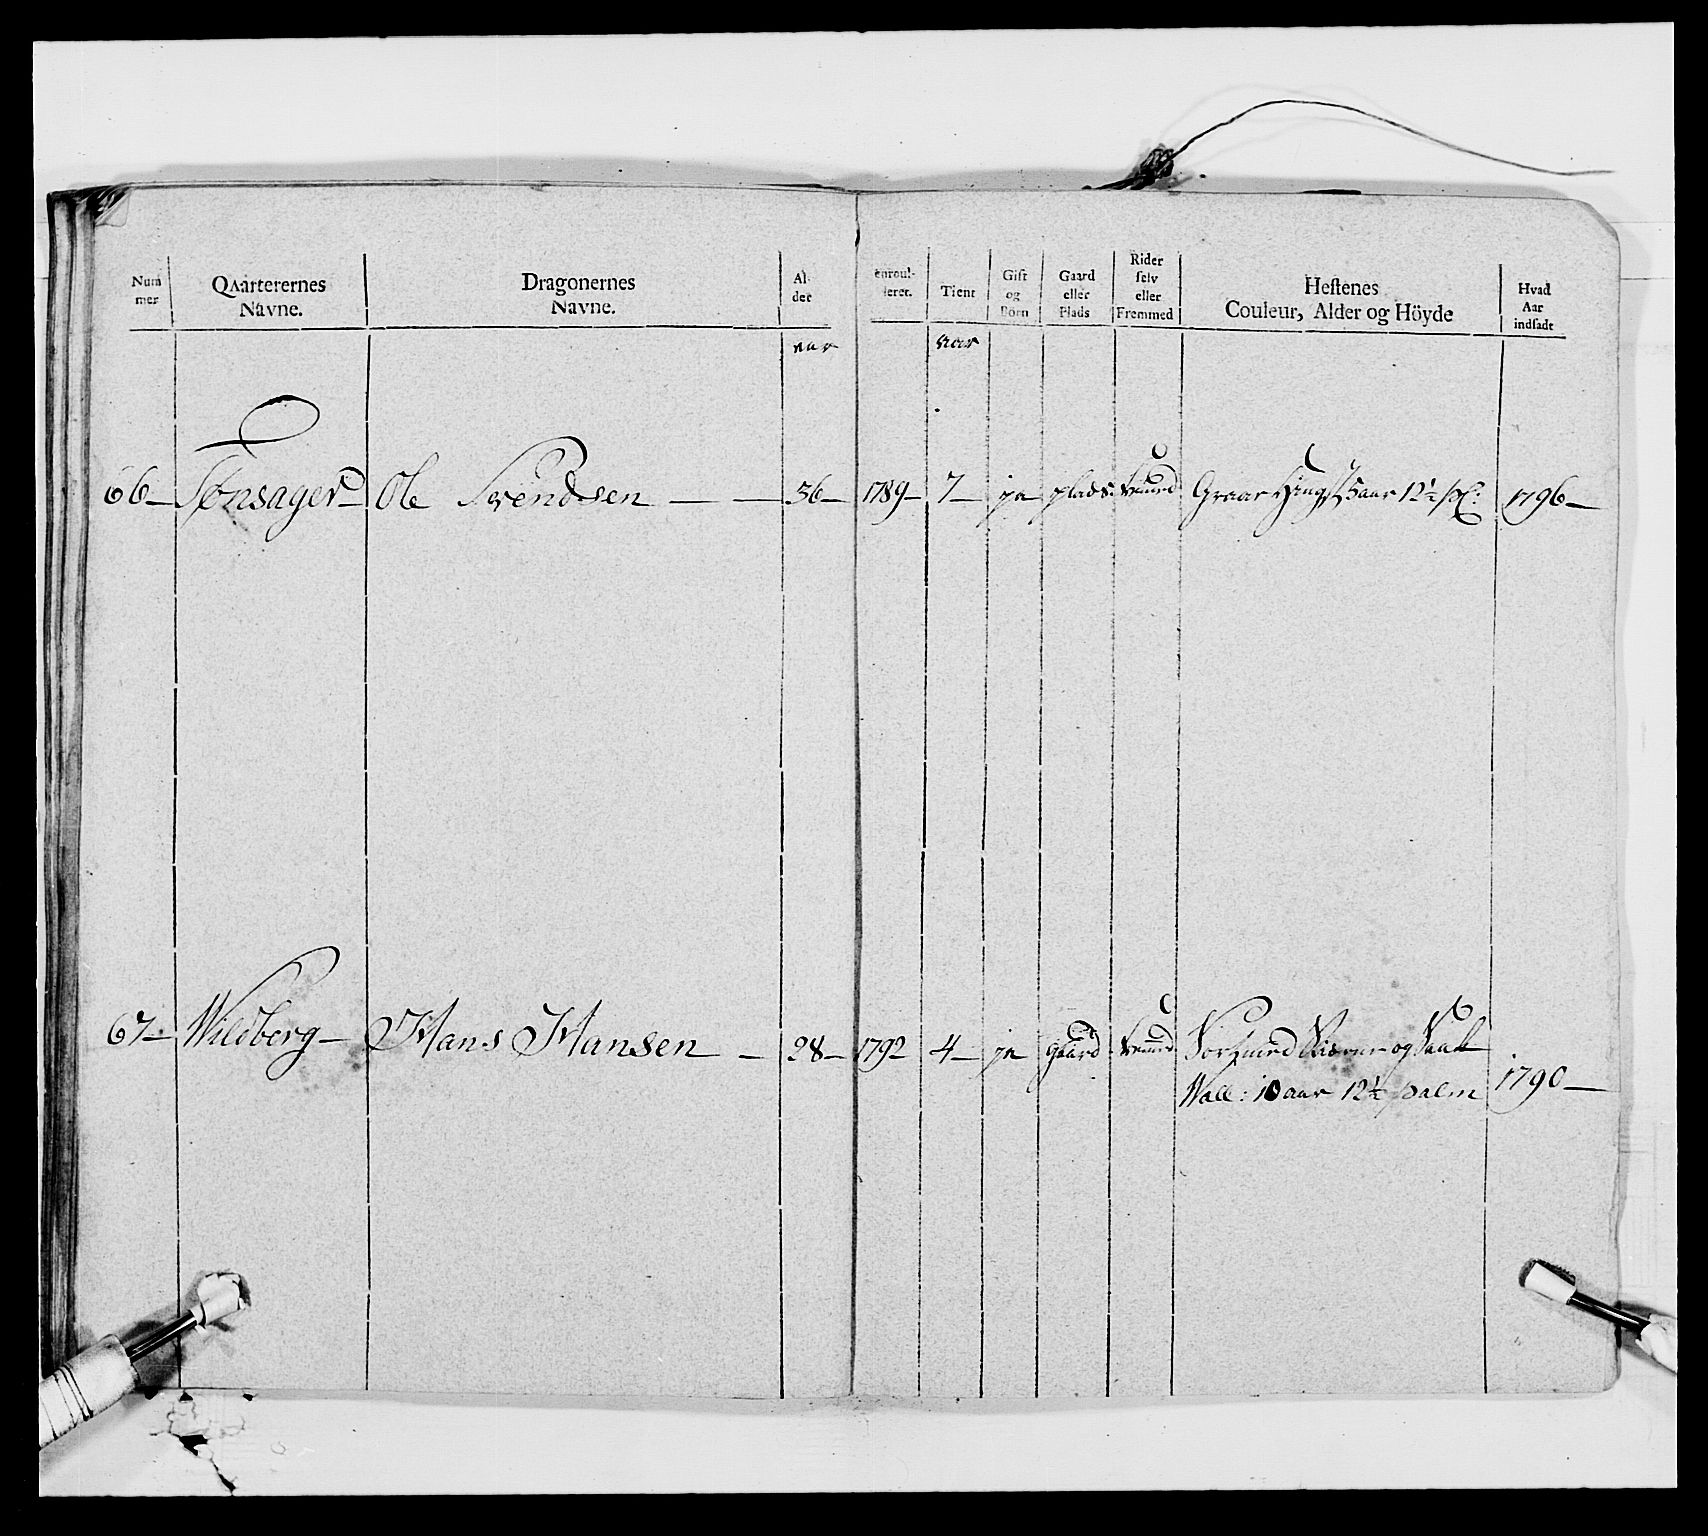 Num mer
Qvarterernes Navne.
Dragonernes Navne.
Al- der
enroul- leret.
Tient
Gift og Börn
Gaard eller Plads
Rider selv eller Fremmed
Hestenes Couleur, Alder og Höyde
Hvad Aar indsadt
aar
aar
66 — Tønsager Ole Svendsen — — 36 — 1789 — 7 — ja plads fremed Graae Hingst 5 aar 12½ pl: 1796 —
67 — Wildberg — Hans Hansen — 28 — 1792 4 — ja Gaard fremed Sort med Stierne og
Wall: 10 aar 12½ palm 1790 —